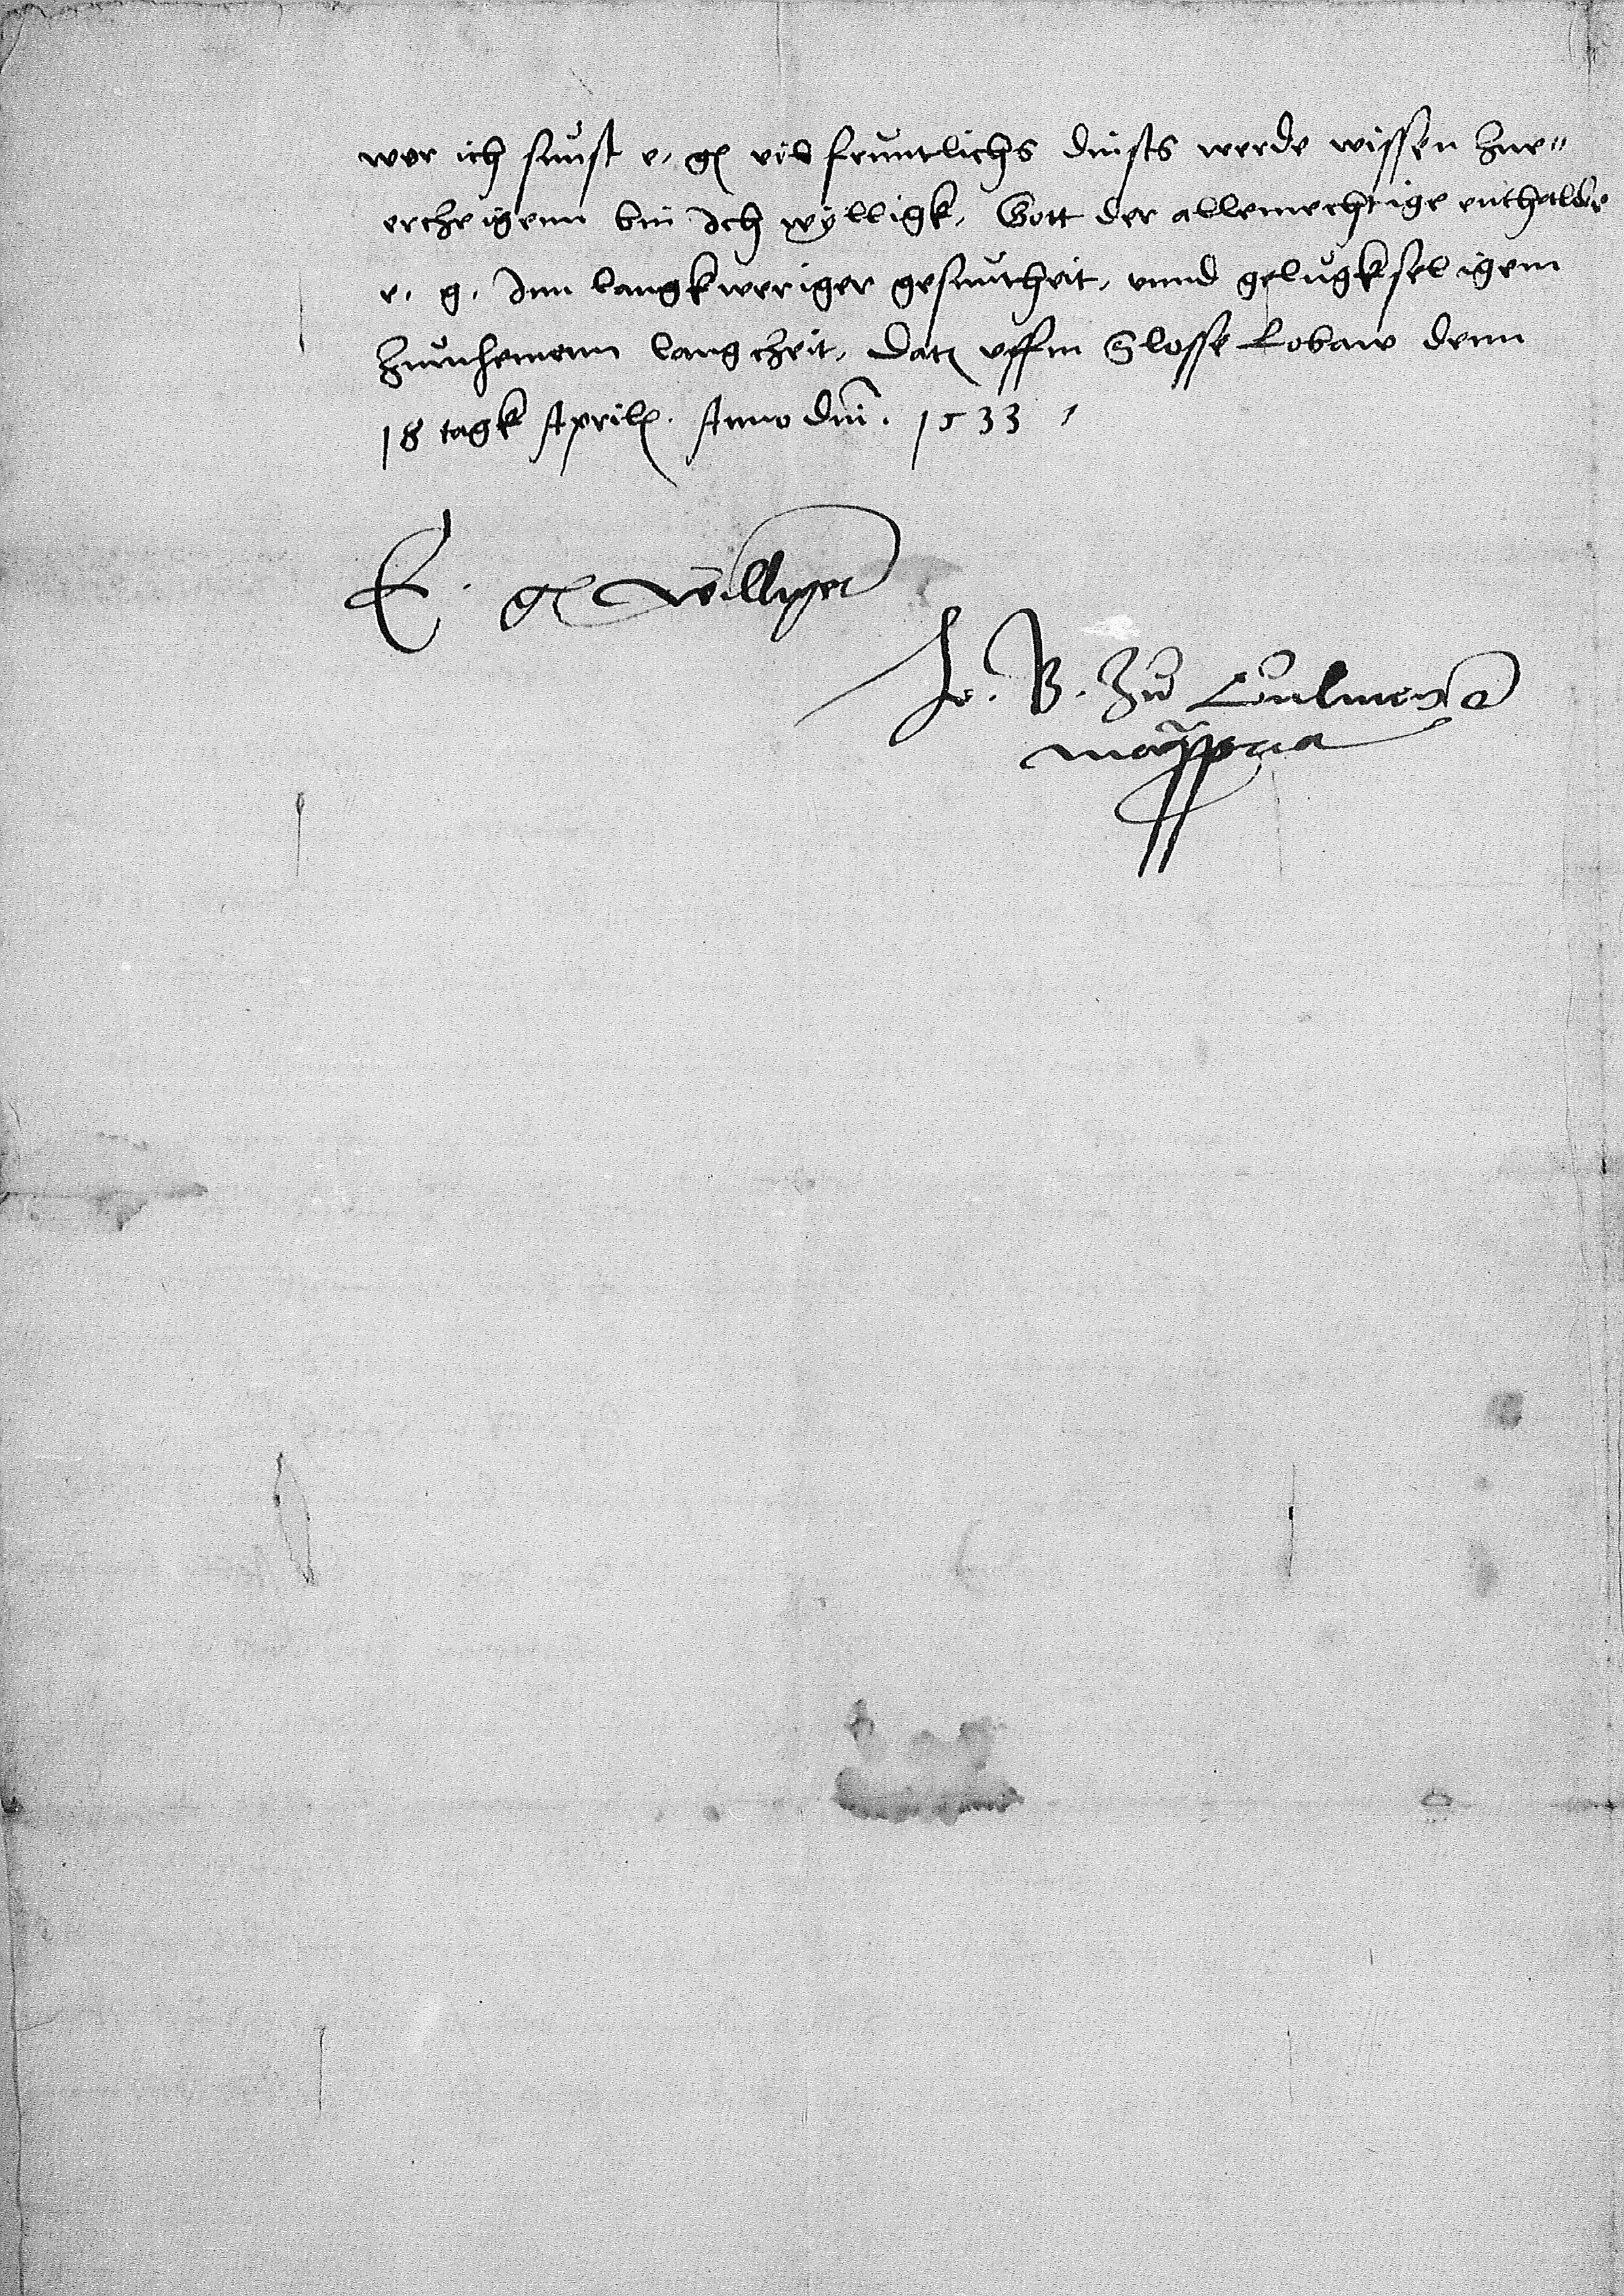 wor ich sunst e. g. vil fruntlichs dinsts werde wissen zue=
erczeigenn bin Ich wylligk, Gott der allemechtige enthalde
e. g. Inn langkweriger gesuntheit, vnnd gelugkseligem
zunhemenn langczeit, Dat. vffm Slosse Lobaw denn
18 tagk Aprilis. Anno dni. 1533
E. g. williger
Jo. B. zu Culmensee
manu ppria